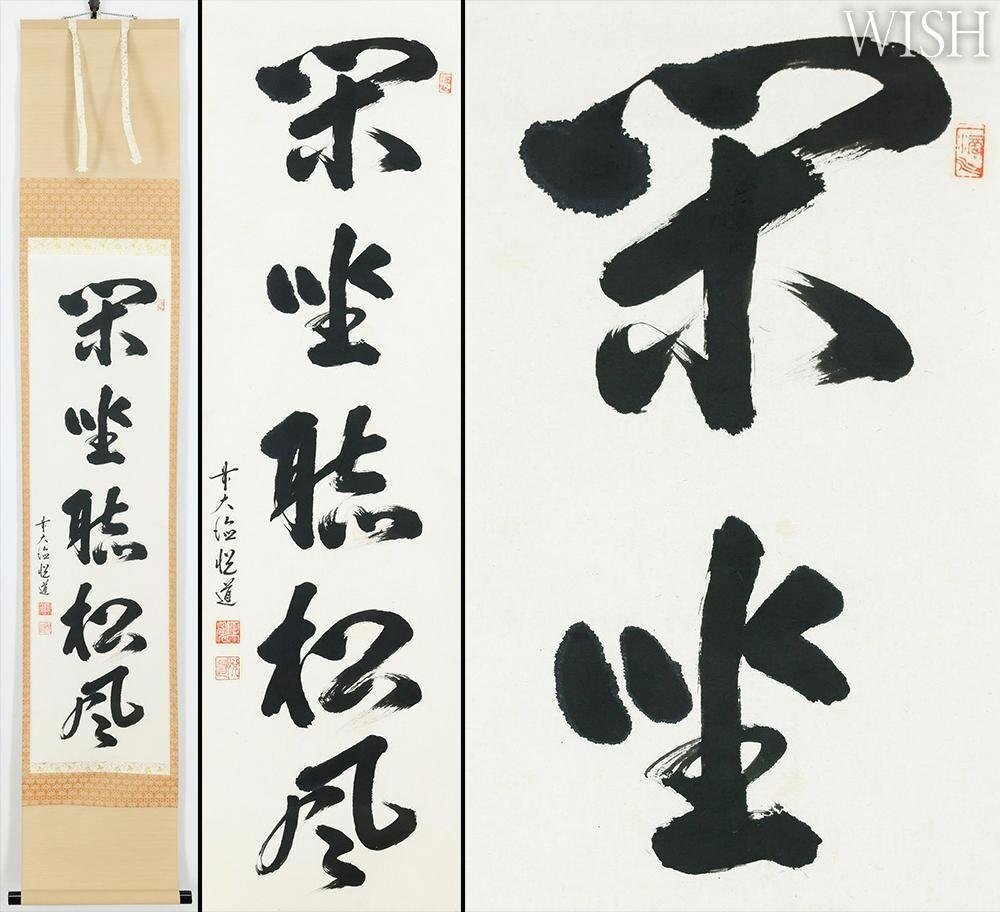 閑坐聴松風
大徳悦道
閑坐聴松風
大徳悦道
閑坐
WISH